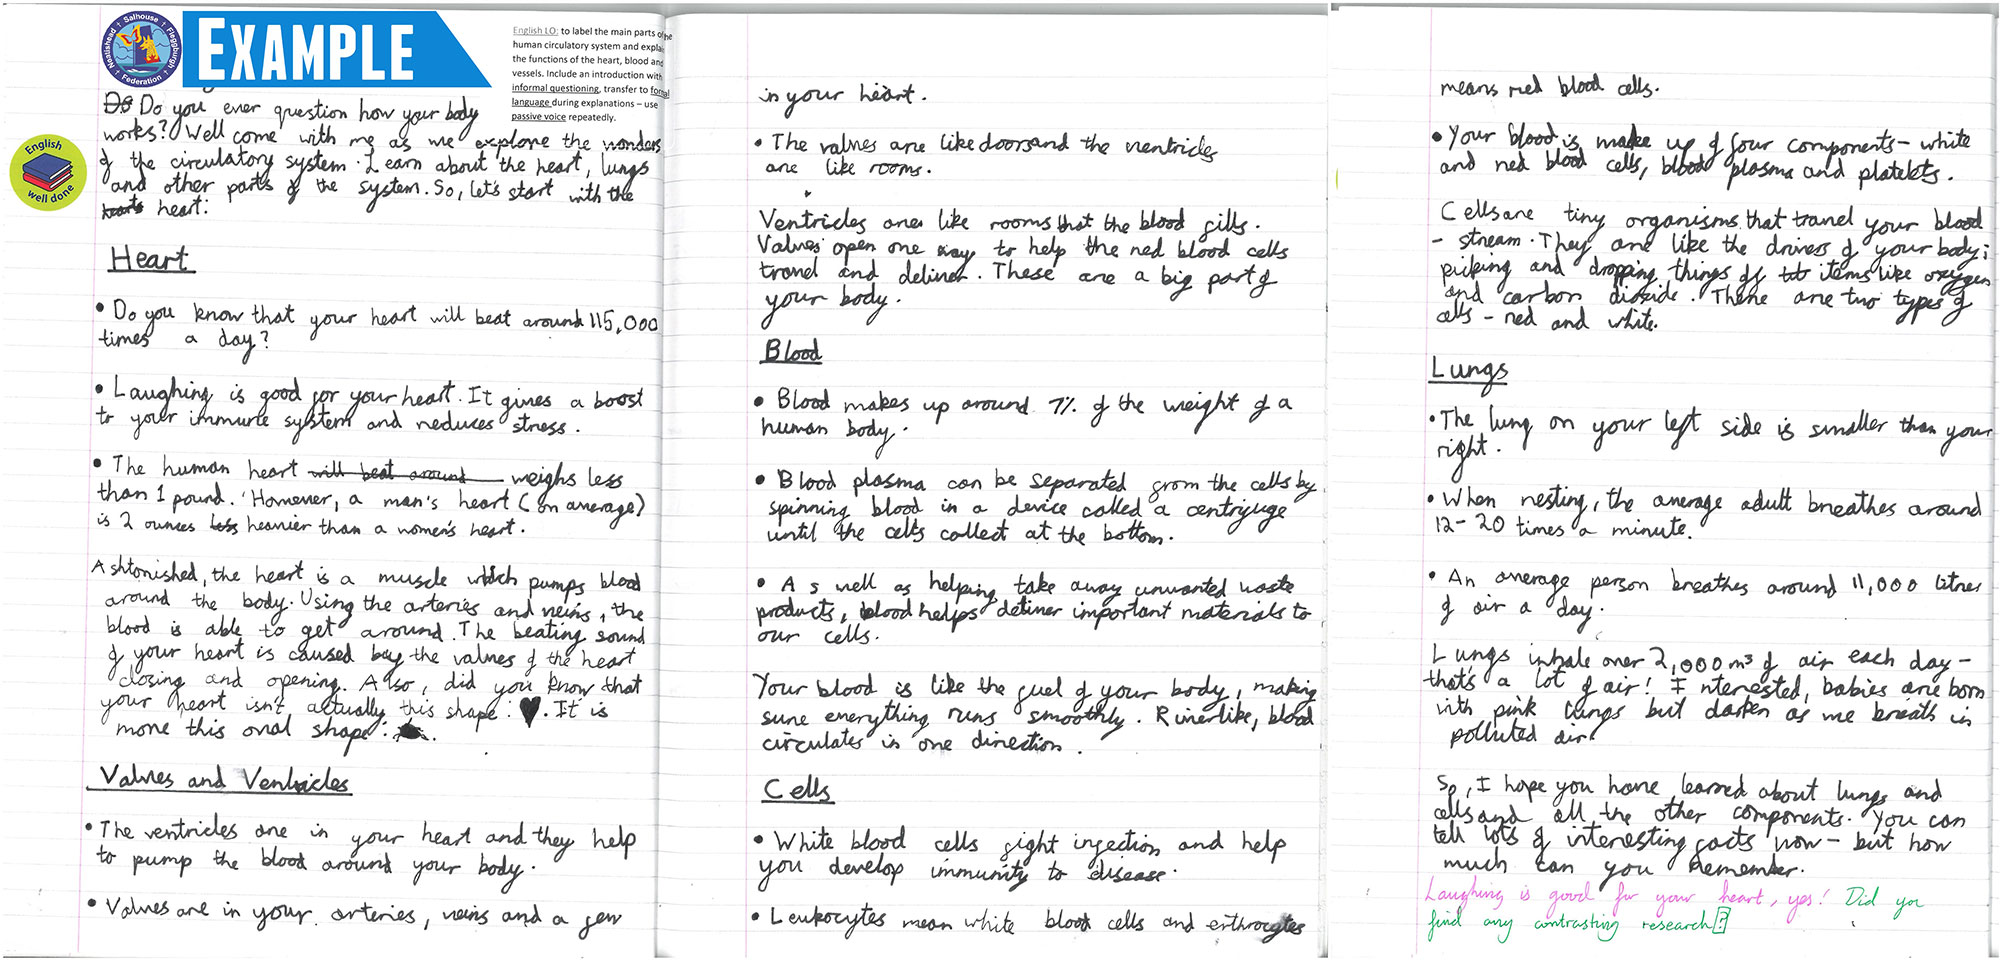 Neatishead Salhouse Fleggburgh Federation
EXAMPLE
English LO: to label the main parts of the
human circulatory system and explain
the functions of the heart, blood and
vessels. Include an introduction with
informal questioning, transfer to formal
language during explanations – use
passive voice repeatedly.
English
well done
Do Do you ever question how your body
works? Well come with me as we explore the wonders
of the circulatory system. Learn about the heart, lungs
and other parts of the system. So, let's start with the
hearts heart:
Heart
• Do you know that your heart will beat around 115,000
times a day?
• Laughing is good for your heart. It gives a boost
to your immune system and reduces stress.
• The human heart will beat around weighs less
than 1 pound. However, a man's heart (on average)
is 2 ounces less heavier than a women's heart.
Ashtonished, the heart is a muscle which pumps blood
around the body. Using the arteries and veins, the
blood is able to get around. The beating sound
of your heart is caused by the valves of the heart
closing and opening. Also, did you know that
your heart isn't actually this shape: ♥. It is
more this oval shape: .
Valves and Ventricles
• The ventricles are in your heart and they help
to pump the blood around your body.
• Valves are in your arteries, veins and a few
in your heart.
• The valves are like doors and the ventricles
are like rooms.
Ventricles are like rooms that the blood fills.
Valves open one way to help the red blood cells
travel and deliver. These are a big part of
your body.
Blood
• Blood makes up around 7% of the weight of a
human body.
• Blood plasma can be separated from the cells by
spinning blood in a device called a centrifuge
until the cells collect at the bottom.
• As well as helping take away unwanted waste
products, blood helps deliver important materials to
our cells.
Your blood is like the fuel of your body, making
sure everything runs smoothly. Riverlike, blood
circulates in one direction.
Cells
• White blood cells fight infection and help
you develop immunity to disease.
• Leukocytes mean white blood cells and erthrocytes
means red blood cells.
• Your blood is make up of four components – white
and red blood cells, blood plasma and platelets.
Cells are tiny organisms that travel your blood
- stream. They are like the drivers of your body;
picking and dropping things of items like oxygen
and carbon dioxide. There are two types of
cells – red and white.
Lungs
• The lung on your left side is smaller than your
right.
• When resting, the average adult breathes around
12-20 times a minute.
• An average person breathes around 11,000 litres
of air a day.
Lungs inhale over 2,000m³ of air each day –
that's a lot of air! Interested, babies are born
with pink lungs but darken as we breath in
polluted air.
So, I hope you have learned about lungs and
cells and all the other components. You can
tell lots of interesting facts now – but how
much can you remember.
Laughing is good for your heart, yes! Did you
find any contrasting research?